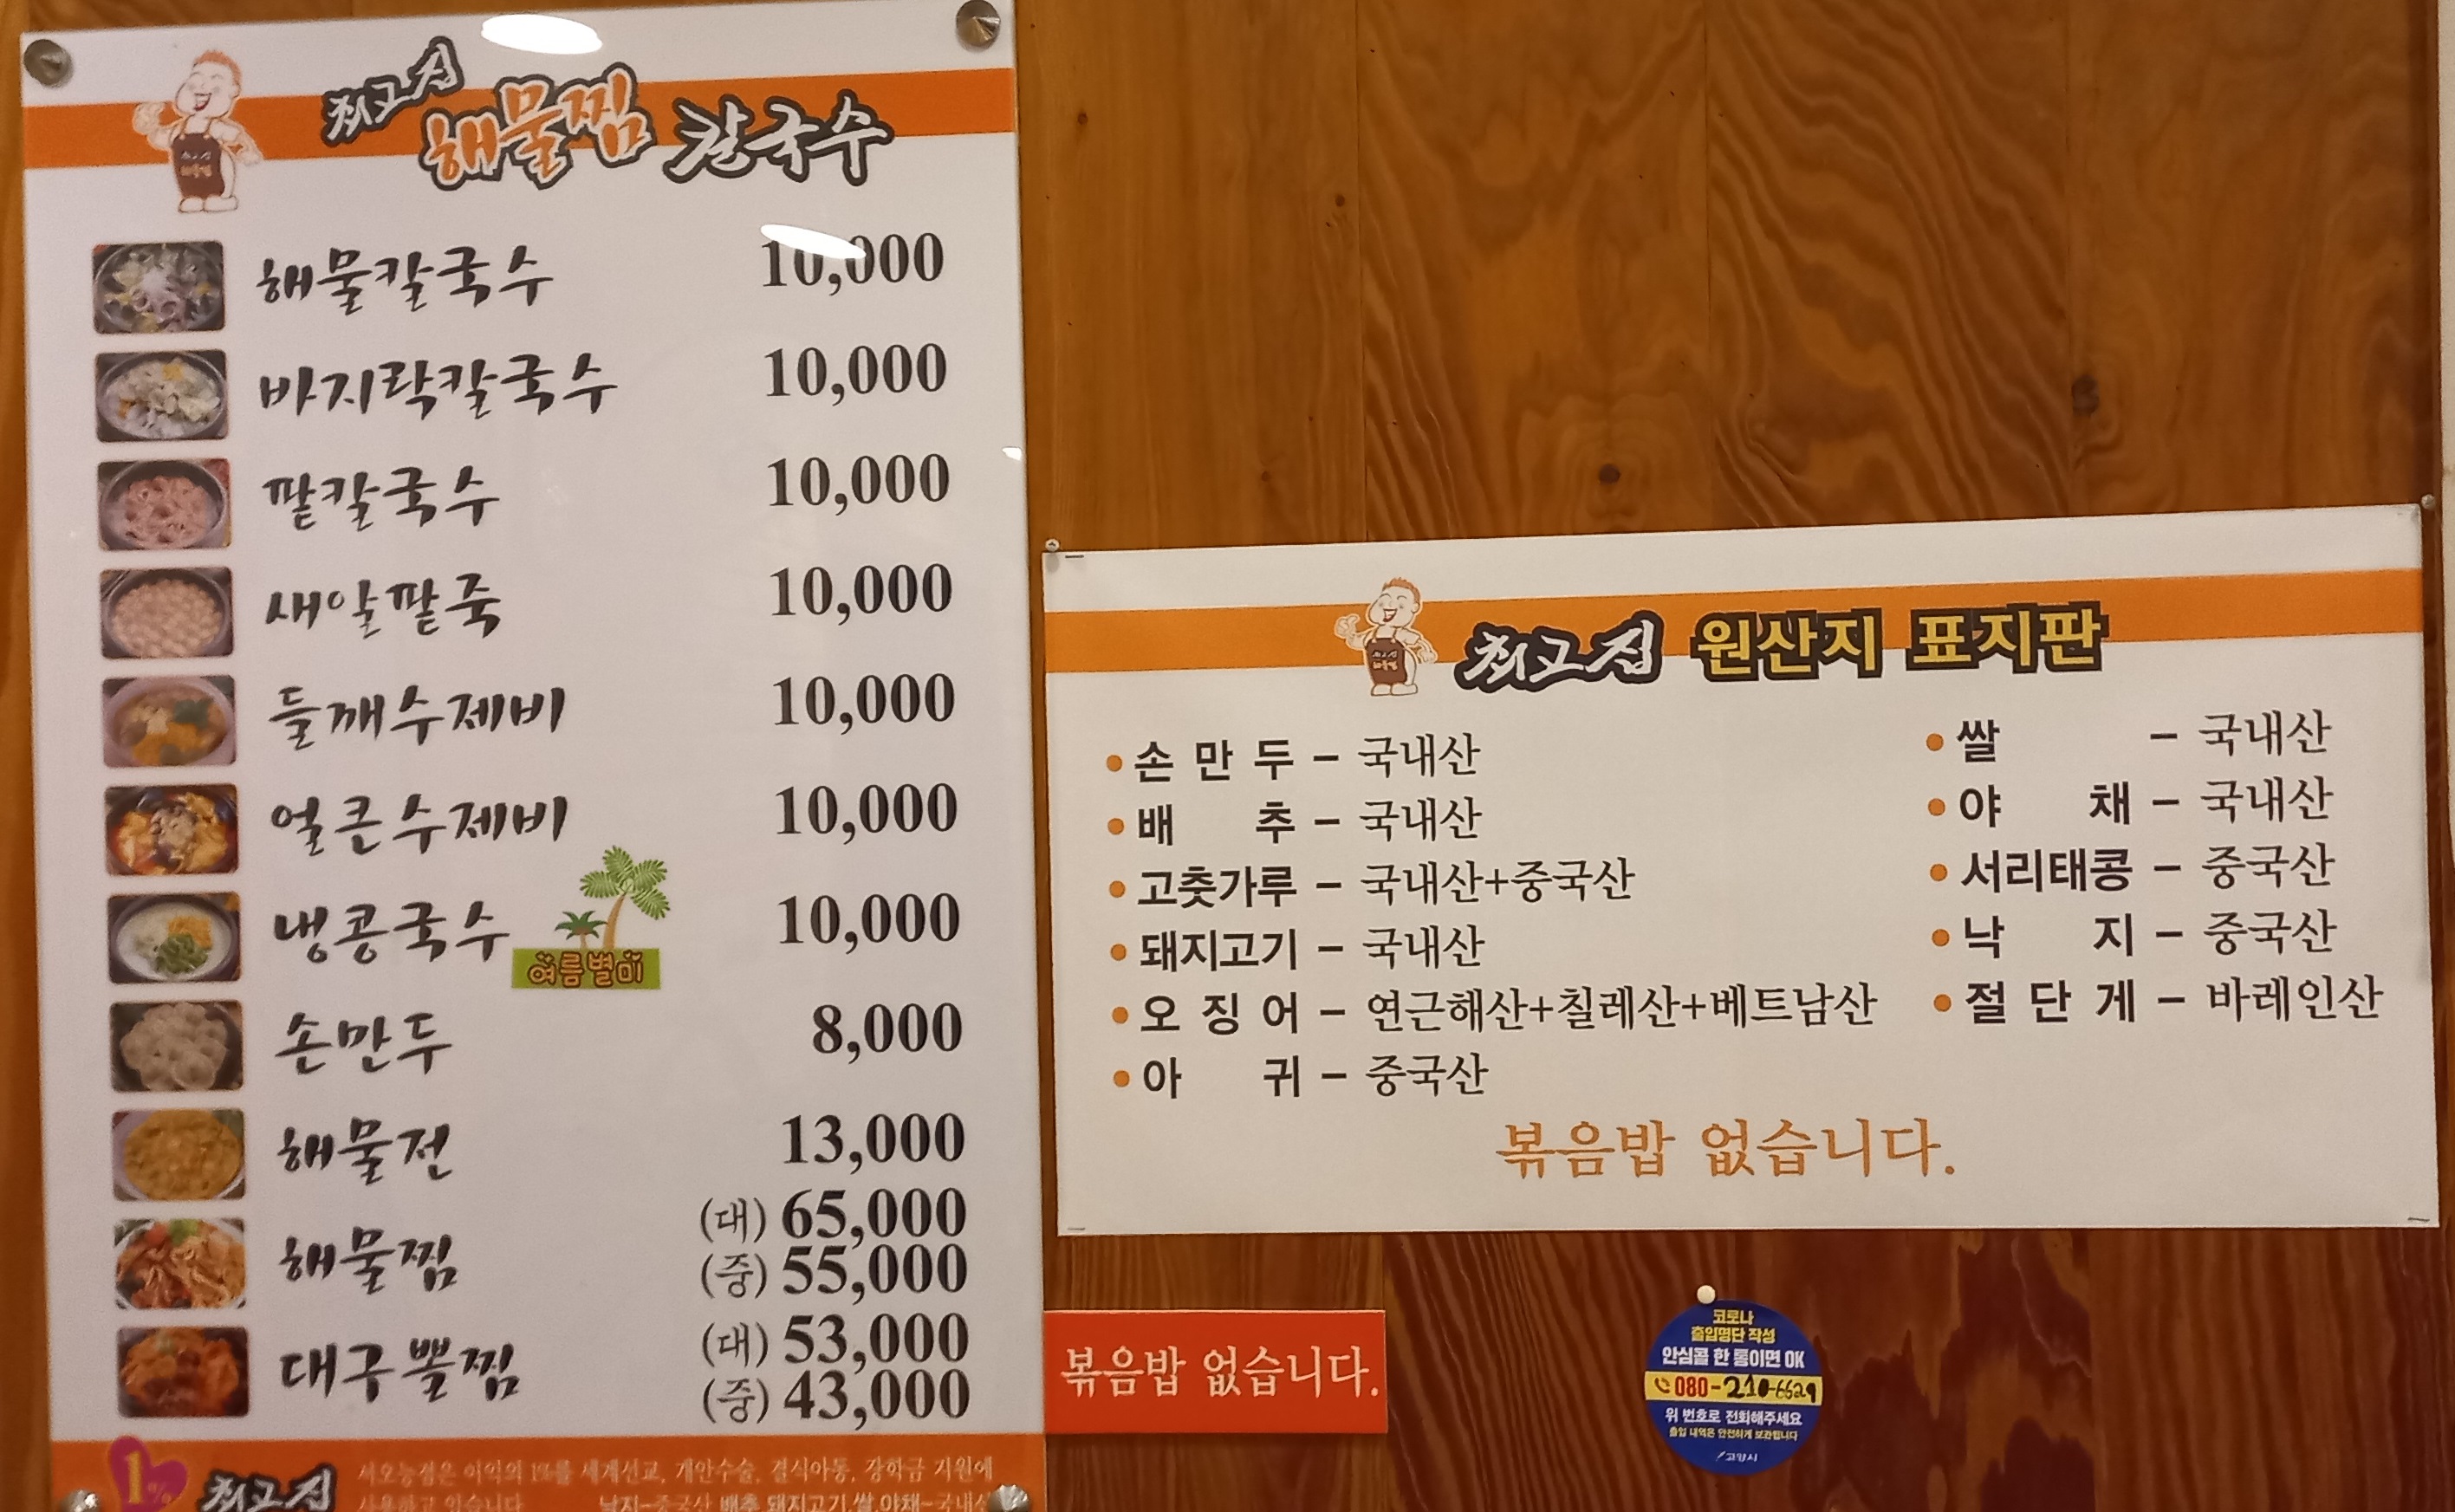 최고집
해물찜 칼국수
해물칼국수 10,000
바지락칼국수 10,000
팥칼국수 10,000
새알팥죽 10,000
들깨수제비 10,000
얼큰수제비 10,000
냉콩국수 10,000
여름별미
손만두 8,000
해물전 13,000
해물찜 (대) 65,000
(중) 55,000
대구뽈찜 (대) 53,000
(중) 43,000
1%
최고집
서오능점은 이익의 1%를 세계선교, 개안수술, 결식아동, 장학금 지원에
사용하고 있습니다
낙지-중국산 배추,돼지고기,쌀,야채-국내산
최고집 원산지 표지판
• 손 만 두 - 국내산
• 배 추 - 국내산
• 고춧가루 - 국내산+중국산
• 돼지고기 - 국내산
• 오 징 어 - 연근해산+칠레산+베트남산
• 아 귀 - 중국산
• 쌀 - 국내산
• 야 채 - 국내산
• 서리태콩 - 중국산
• 낙 지 - 중국산
• 절 단 게 - 바레인산
볶음밥 없습니다.
볶음밥 없습니다.
코로나
출입명단 작성
안심콜 한 통이면 OK
080-210-6629
위 번호로 전화해주세요
출입 내역은 안전하게 보관됩니다
고양시